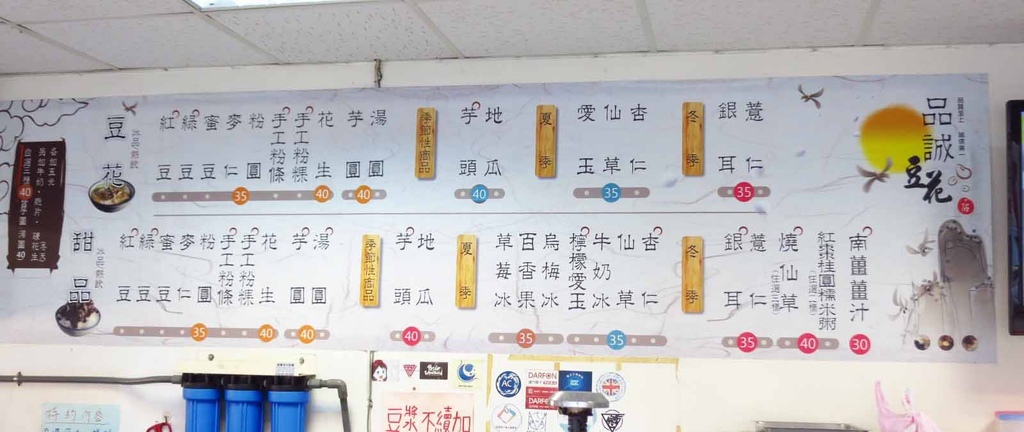 品誠
豆花
豆花
冰品/熱飲
紅豆
綠豆
蜜豆
麥仁
粉圓
手工粉條
手工粉粿
花生
芋圓
湯圓
35
40
40
季節性商品
芋頭
地瓜
40
夏季
愛玉
仙草
杏仁
35
冬季
銀耳
薏仁
35
甜品
冰品/熱飲
紅豆
綠豆
蜜豆
麥仁
粉圓
手工粉條
手工粉粿
花生
芋圓
湯圓
35
40
40
季節性商品
芋頭
地瓜
40
夏季
草莓冰
百香果
烏梅冰
35
檸檬愛玉
牛奶冰
仙草
杏仁
35
冬季
銀耳
薏仁
35
燒仙草
(任選三樣)
紅棗桂圓糯米粥
(任選二樣)
40
南薑薑汁
30
豆漿不續加
AC
DARFON
DARFON